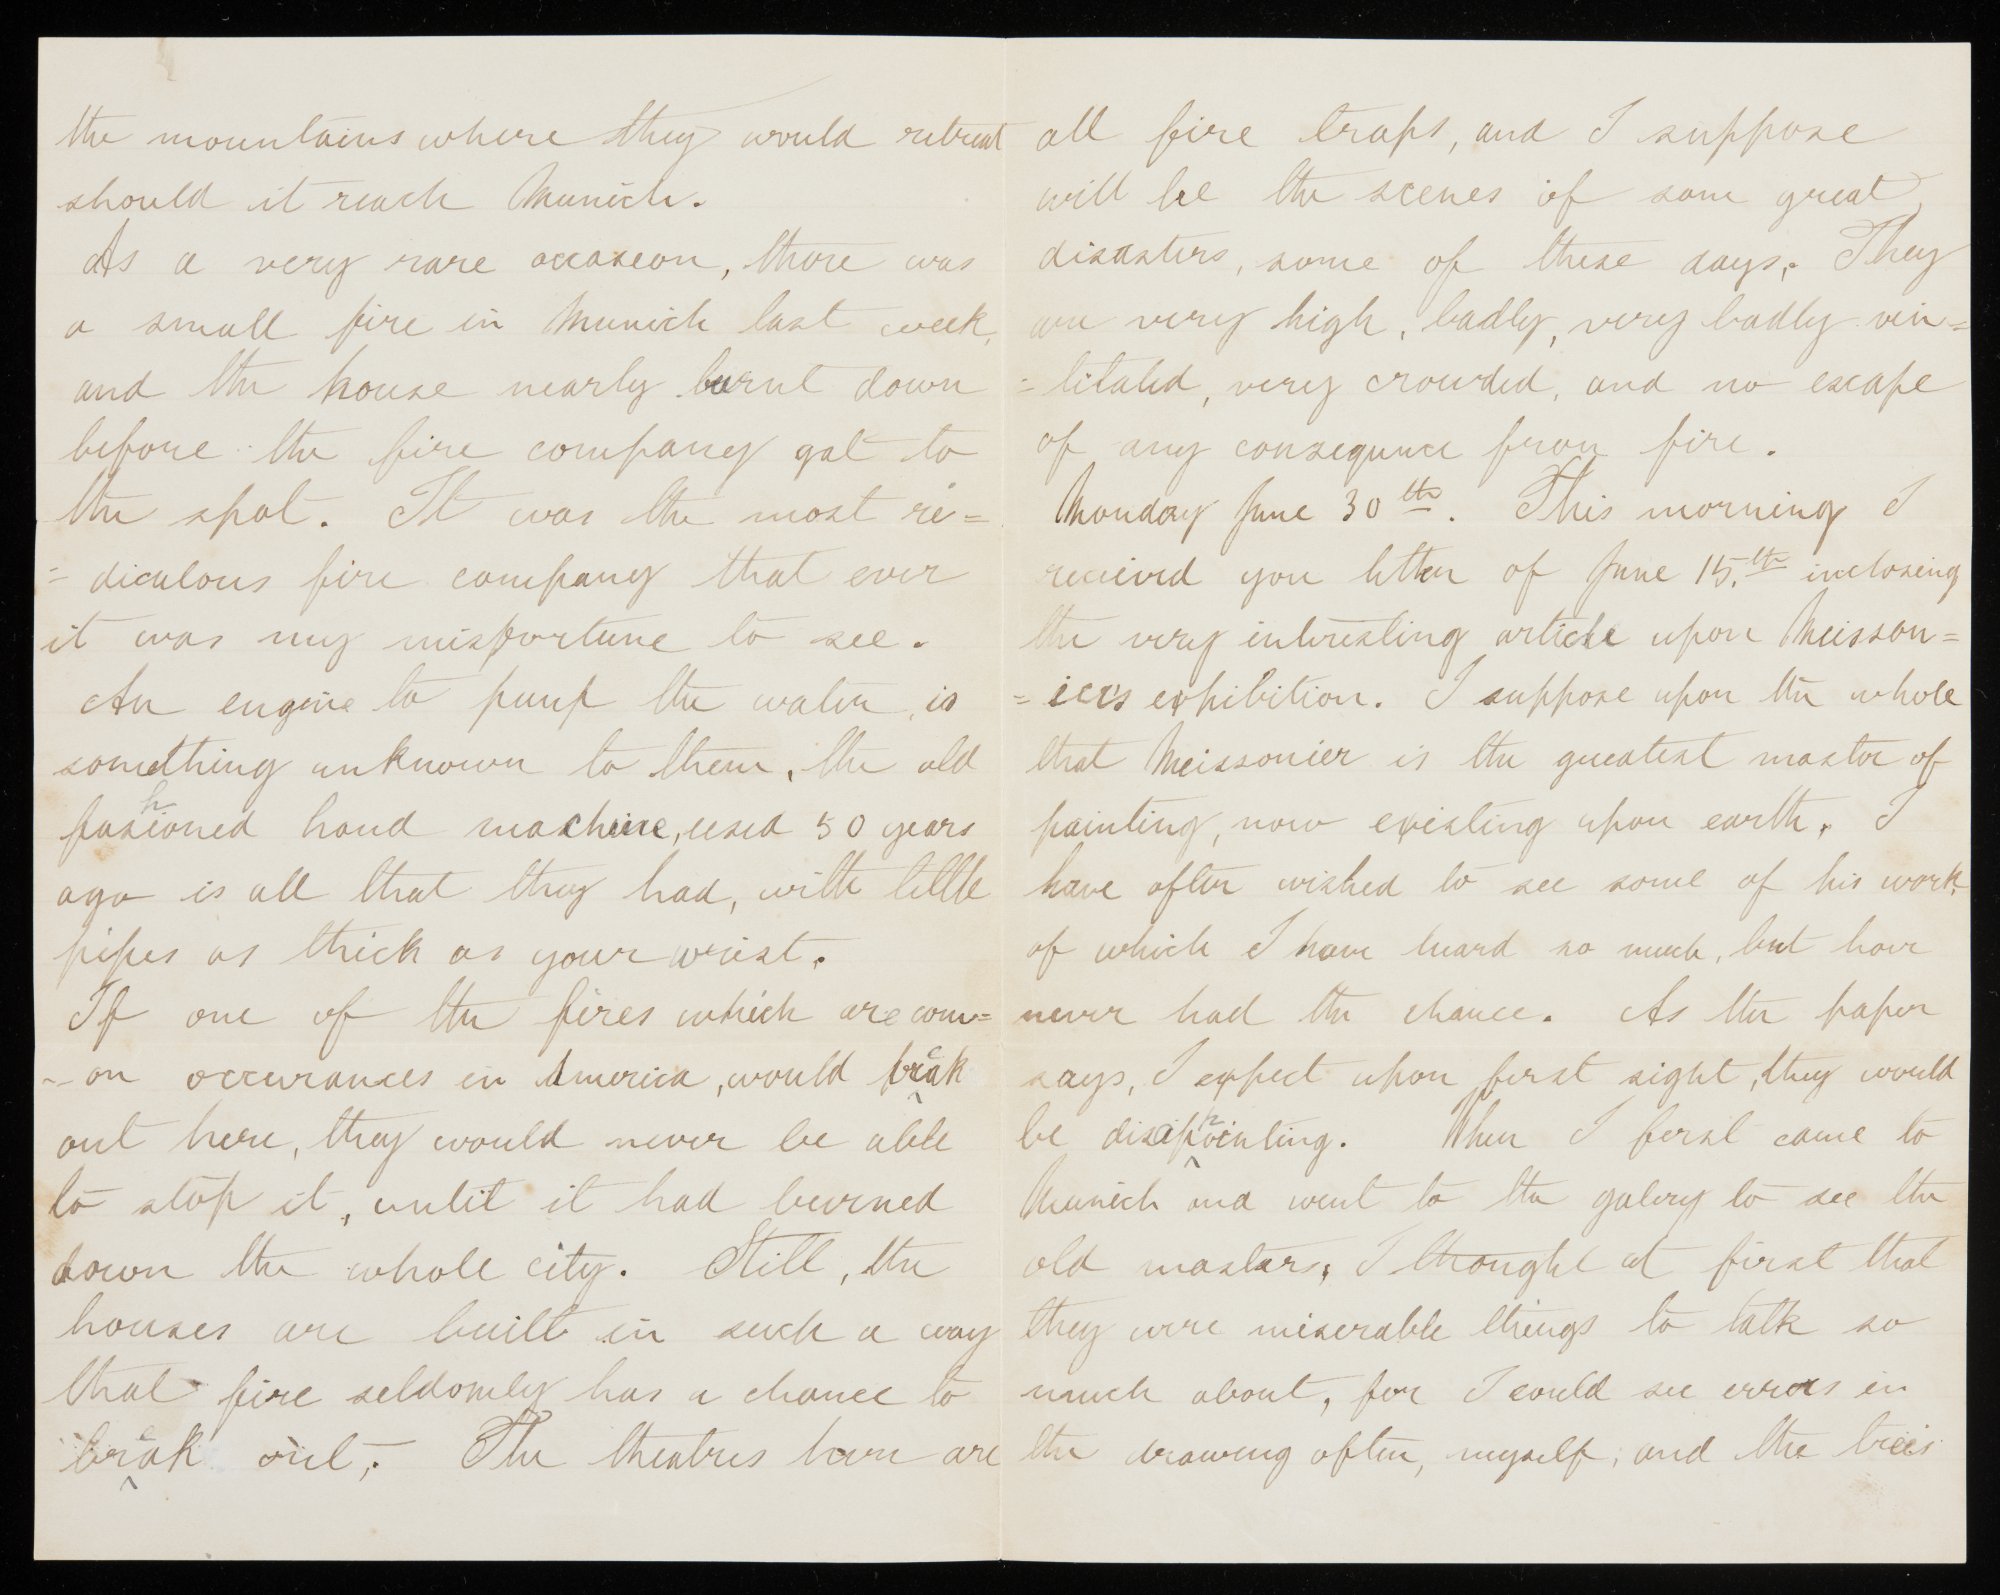 the mountains where they would retreat
should it reach Munich.
As a very rare occaseon, there was
a small fire in Munich last week,
and the house nearly burnt down
before the fire company got to
the spot. It was the most re=
= diculous fire company that ever
it was my misfortune to see.
An engine to pump the water, is
something unknown to them, the old
fashioned hand machine, used 50 years
ago is all that they had, with little
pipes as thick as your wrist.
If one of the fires which are com=
- on occurances in America, would break
out here, they would never be able
to stop it, untit it had burned
down the whole city. Still, the
houses are built in such a way
that fire seldomly has a chance to
break out. The theatres here are
all fire traps, and I suppose
will be the scenes of some great
disasters, some of these days. They
are very high, badly, very badly vin=
= titated, very crowded, and no escape
of any consequence from fire.
Monday June 30th. This morning I
recieved you letter of June 15.th inclosing
the very interesting article upon Meisson=
= iers exhibition. I suppose upon the whole
that Meissonier is the greatest master of
painting, now existing upon earth. I
have often wished to see some of his work,
of which I have heard so much, but have
never had the chance. As the paper
says, I expect upon first sight, they would
be disappointing. When I first came to
Munich and went to the galery to see the
old masters, I thought at first that
they were miserable things to talk so
much about, for I could see errors in
the drawing often, myself, and the trees